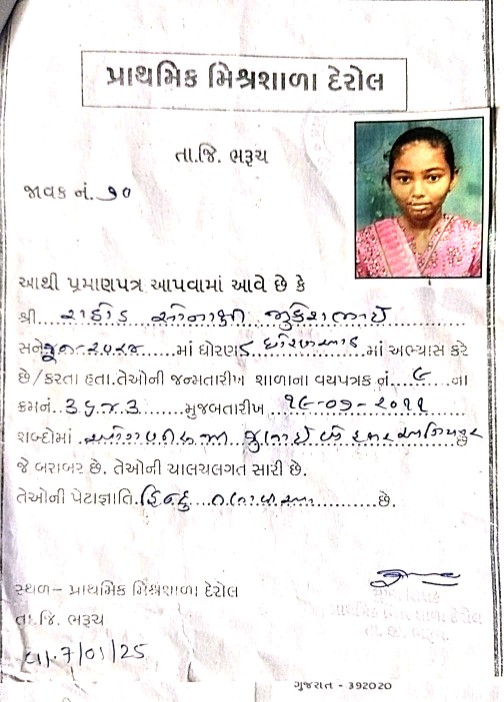 પ્રાથમિક મિશ્રશાળા દેરોલ
તા.જિ. ભરૂચ
જાવક નં. ૧૦
આથી પ્રમાણપત્ર આપવામાં આવે છે કે
શ્રી. રાઠોડ સોનાક્ષી મુકેશભાઈ
સને જૂન-૨૦૨૪ માં ધોરણ ૮ માં અભ્યાસ કરે
છે/કરતા હતા.તેઓની જન્મતારીખ શાળાના વયપત્રક નં. ૯ ના
ક્રમનં. ૩૬૪૩ મુજબતારીખ ૧૯-૦૭-૨૦૧૧
શબ્દોમાં જુલાઈ બે હજાર અગિયાર છે
જે બરાબર છે. તેઓની ચાલચલગત સારી છે.
તેઓની પેટાજ્ઞાતિ. હિન્દુ છે.
સ્થળ– પ્રાથમિક મિશ્રશાળા દેરોલ
તા.જિ. ભરૂચ
તા. 7/01/25
પ્રાથમિક મિશ્રશાળા દેરોલ
તા. જિ. ભરૂચ.
ગુજરાત - 392020